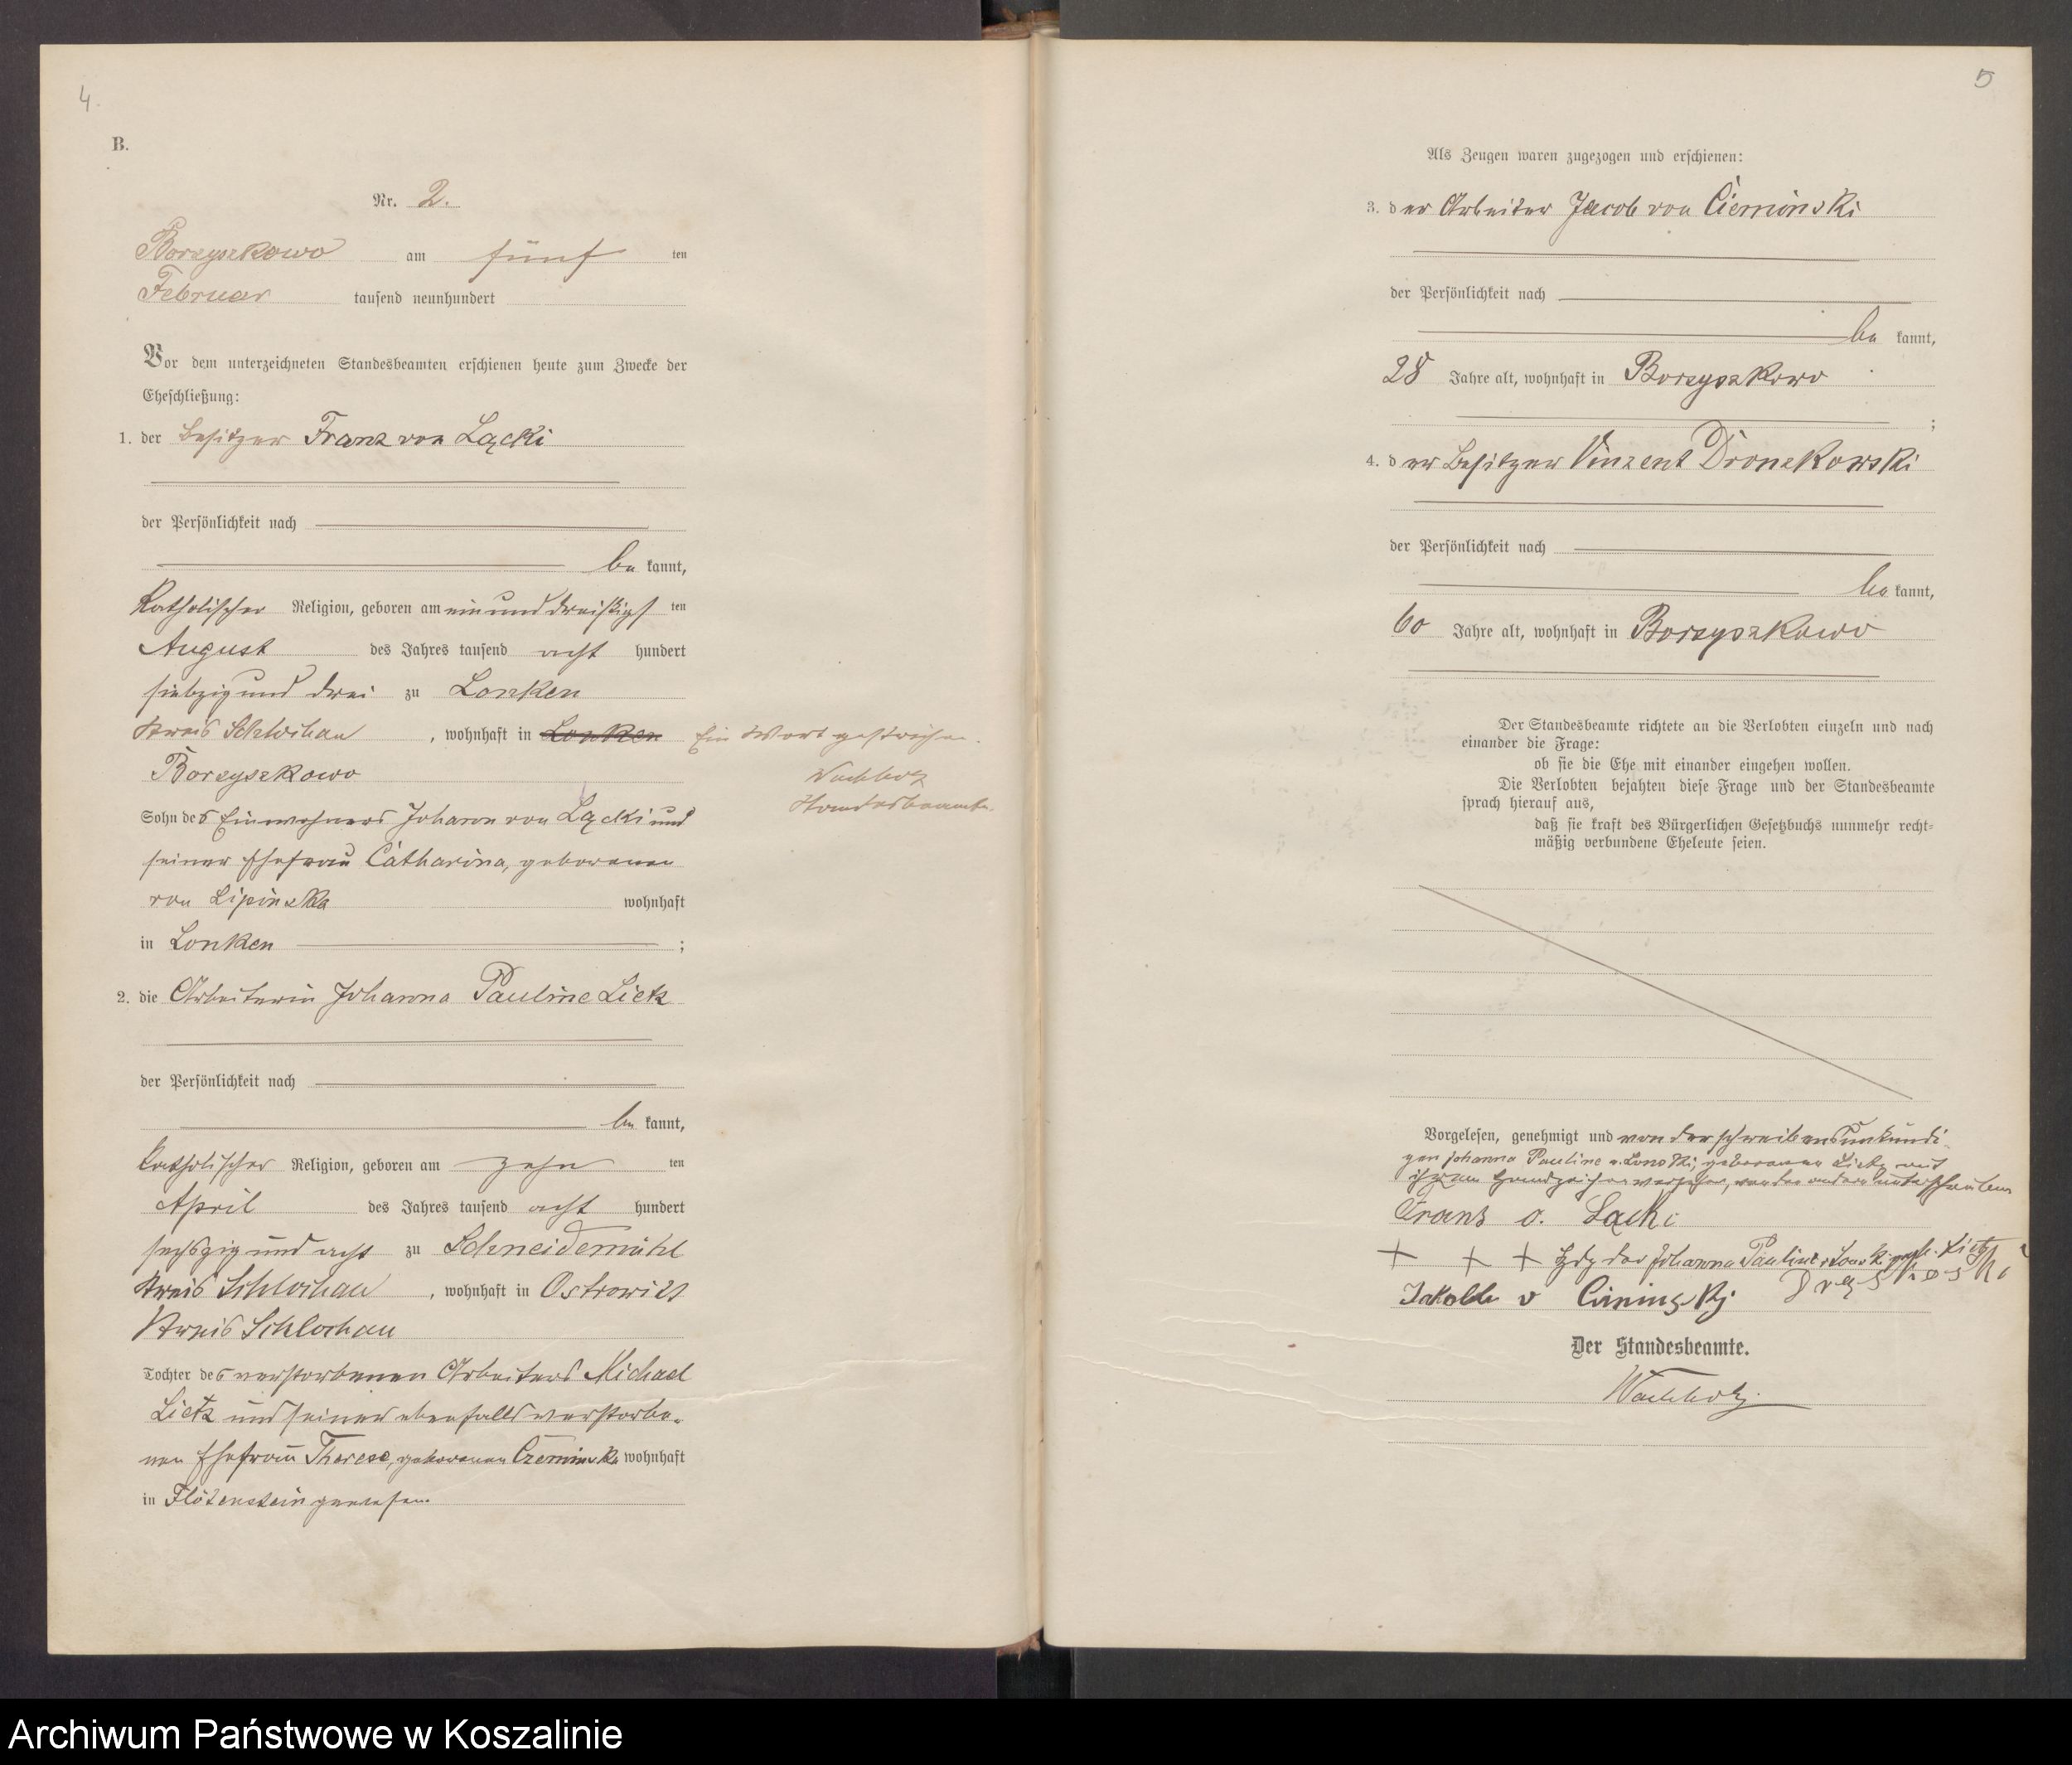 4.
B.
Nr. 2.
Borzyszkowo am fünf ten
Februar tausend neunhundert
Vor dem unterzeichneten Standesbeamten erschienen heute zum Zwecke der
Eheschließung:
1. der Besitzer Franz von Lącki
der Persönlichkeit nach
be kannt,
katholischer Religion, geboren am einunddreißigs ten
August des Jahres tausend acht hundert
siebzig und drei zu Lonken
Kreis Schlochau, wohnhaft in Lonken Ein Wort gestrichen.
Borzyszkowo Wachholz
Standesbeamter.
Sohn des Einwohners Johann von Lącki und
seiner Ehefrau Catharina, geborenen
von Lipinska wohnhaft
in Lonken ;
2. die Arbeiterin Johanna Pauline Lietz
der Persönlichkeit nach
be kannt,
katholischer Religion, geboren am zehn ten
April des Jahres tausend acht hundert
sechszig und acht zu Schneidemühl
Kreis Schlochau, wohnhaft in Ostrowitt
Kreis Schlochau
Tochter des verstorbenen Arbeiters Michael
Lietz und seiner ebenfalls verstorbe-
nen Ehefrau Therese, geborenen wohnhaft
in Flötenstein gewesen.
5
Als Zeugen waren zugezogen und erschienen:
3. der Arbeiter Jacob von Cieminski
der Persönlichkeit nach
be kannt,
28 Jahre alt, wohnhaft in Borzyszkowo
;
4. der Besitzer Vinzent Dronzkowski
der Persönlichkeit nach
be kannt,
60 Jahre alt, wohnhaft in Borzyszkowo
Der Standesbeamte richtete an die Verlobten einzeln und nach
einander die Frage:
ob sie die Ehe mit einander eingehen wollen.
Die Verlobten bejahten diese Frage und der Standesbeamte
sprach hierauf aus,
daß sie kraft des Bürgerlichen Gesetzbuchs nunmehr recht-
mäßig verbundene Eheleute seien.
Vorgelesen, genehmigt und von der schreibensunkundi-
gen Johanna Pauline v. geborenen Lietz mit
ihrem Handzeichen versehen, von den andern unterschrieben
Franz v. Lącki
+ + + Hdz der Johanna Pauline v. geb. Lietz
Jakob v
Der Standesbeamte.
Wachholz
Archiwum Państwowe w Koszalinie